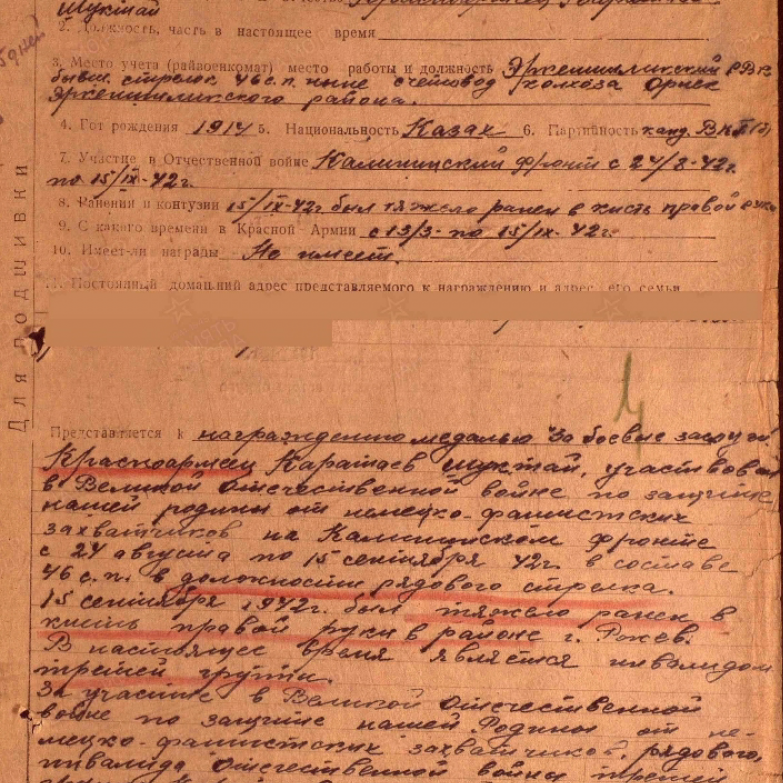 Шуктай
2. Должность, часть в настоящее время
3. Место учета (райвоенкомат) место работы и должность Эркешиликский РВК
бывш. стрелок 46 с.п. ныне счетовод колхоза Орнек
Эркешиликского района.
4. Гот рождения 1914 5. Национальность Казах 6. Партийность канд. ВКП(б)
7. Участие в Отечественной войне Калининский фронт с 24/8-42г.
по 15/IX-42г.
8. Ранения и контузии 15/IX-42г был тяжело ранен в кисть правой руки
9. С какого времени в Красной Армии с 13/3- по 15/IX-42г.
10. Имеет-ли награды Не имеет.
11. Постоянный домашний адрес представляемого к награждению и адрес его семьи
Для подшивки
Представляется к награждению медалью "За боевые заслуги"
Красноармеец Каратаев Шуктай, участвовал
в Великой Отечественной войне по защите
нашей родины от немецко-фашистских
захватчиков на Калининском фронте
с 24 августа по 15 сентября 42г. в составе
46 с.п. в должности рядового стрелка.
15 сентября 1942г. был тяжело ранен в
кисть правой руки в районе г. Ржев.
В настоящее время является инвалидом
третей группы.
За участие в Великой Отечественной
войне по защите нашей Родины от не-
мецко-фашистских захватчиков, рядового,
инвалида Отечественной войны третей